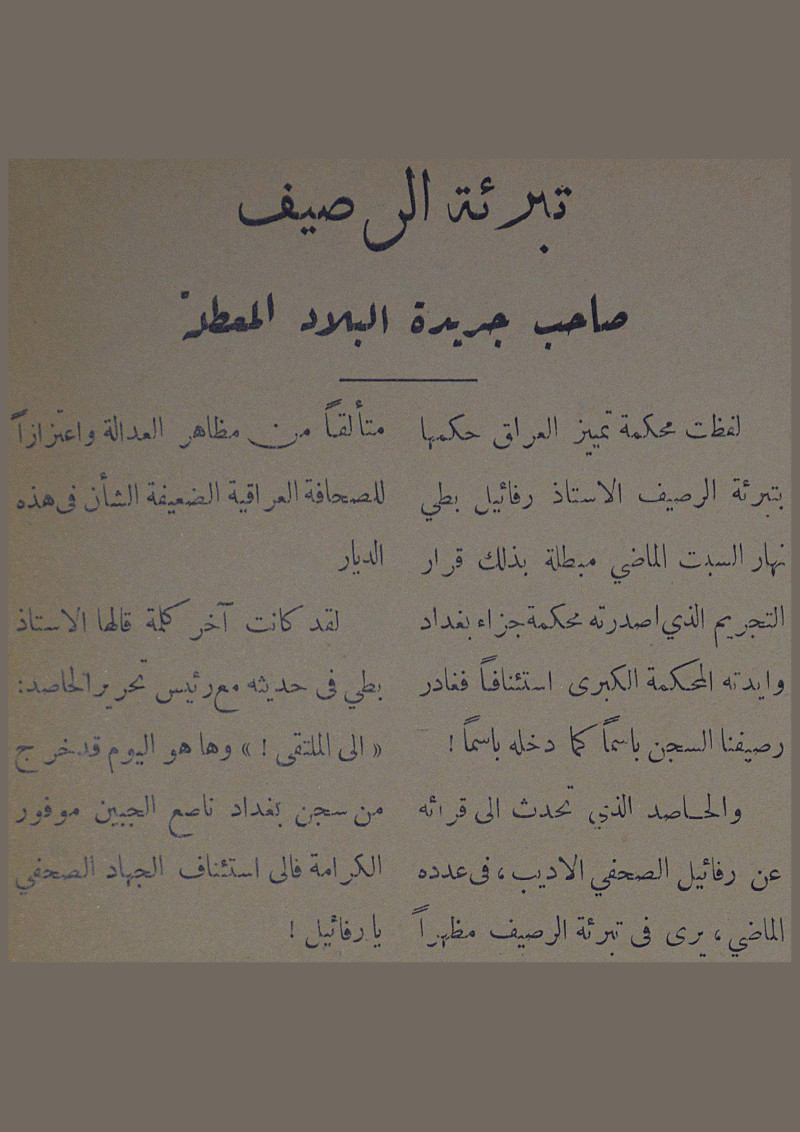 تبرئة الرصيف
صاحب جريدة البلاد المعطلة
لفظت محكمة تمييز العراق حكمها
بتبرئة الرصيف الاستاذ رفائيل بطي
نهار السبت الماضي مبطلة بذلك قرار
التجريم الذي اصدرته محكمة جزاء بغداد
وايدته المحكمة الكبرى استئنافاً فغادر
رصيفنا السجن باسماً كما دخله باسماً !
والحاصد الذي تحدث الى قرائه
عن رفائيل الصحفي الاديب ، فى عدده
الماضي ، يرى فى تبرئة الرصيف مظهراً
متألقاً من مظاهر العدالة واعتزازاً
للصحافة العراقية الضعيفة الشأن فى هذه
الديار
لقد كانت آخر كلمة قالها الاستاذ
بطي فى حديثه مع رئيس تحرير الحاصد :
« الى الملتقى ! » وها هو اليوم قد خرج
من سجن بغداد ناصع الجبين موفور
الكرامة فالى استئناف الجهاد الصحفي
يا رفائيل !